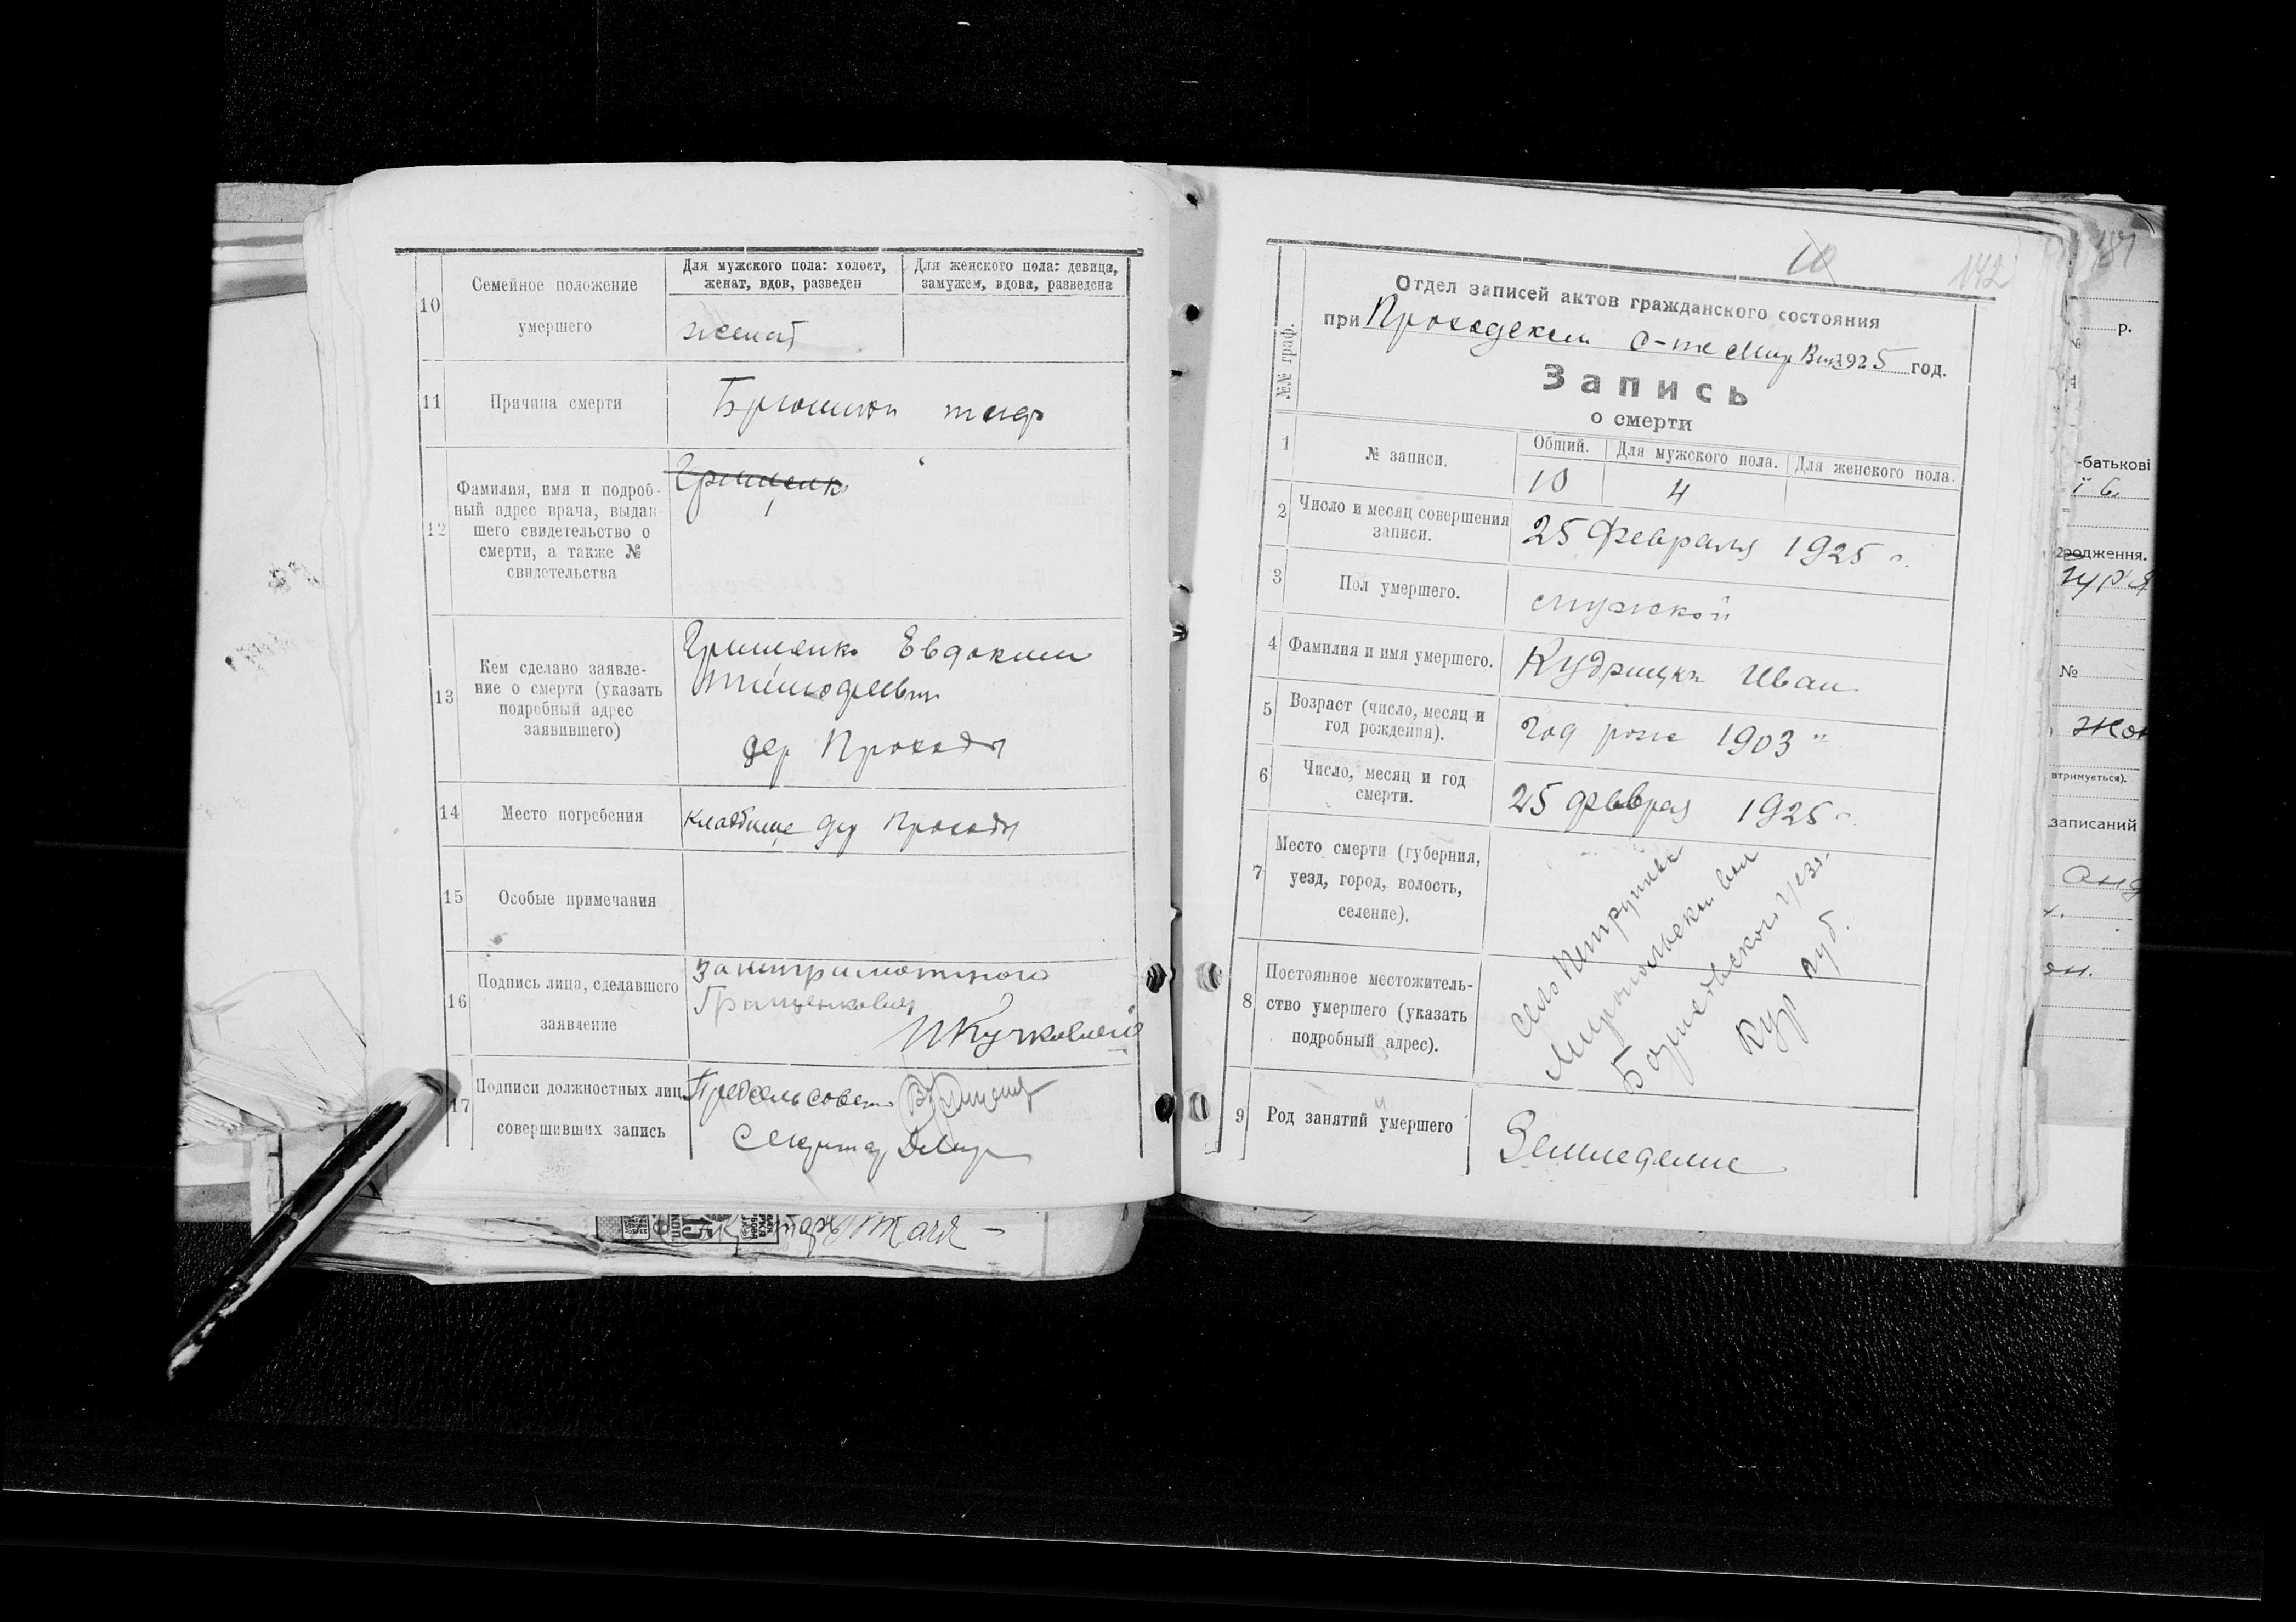 10
Семейное положение
умершего
Для мужского пола: холост,
женат, вдов, разведен
Для женского пола: девица,
замужем, вдова, разведена
женат
11
Причина смерти
Брюшной тиф
12
Фамилия, имя и подроб-
ный адрес врача, выдав-
шего свидетельство о
смерти, а также №
свидетельства
Грищенко
13
Кем сделано заявле-
ние о смерти (указать
подробный адрес
заявившего)
Грищенко Евдоким
Тимофеевич
дер Проходы
14
Место погребения
кладбище дер Проходы
15
Особые примечания
16
Подпись лица, сделавшего
заявление
За неграмотного
17
Подписи должностных лиц,
совершивших запись
Предсельсовета
Секретар
10
142
Отдел записей актов гражданского состояния
при Проходском с-те Мир Вик 1925 год.
№№ граф.
Запись
о смерти
1
№ записи.
Общий.
Для мужского пола.
Для женского пола.
10
4
2
Число и месяц совершения
записи.
25 февраля 1925 г.
3
Пол умершего.
мужской
4
Фамилия и имя умершего.
Кудрицки Иван
5
Возраст (число, месяц и
год рождения).
год рож 1903
6
Число, месяц и год
смерти.
25 феврал 1925 г.
7
Место смерти (губерния,
уезд, город, волость,
селение).
8
Постоянное местожитель-
ство умершего (указать
подробный адрес).
село
Миропольской вол
уезд
Кур губ.
9
Род занятий умершего
Земледелие
р.
№
-батькові
родження.
№
втримується).
записаний